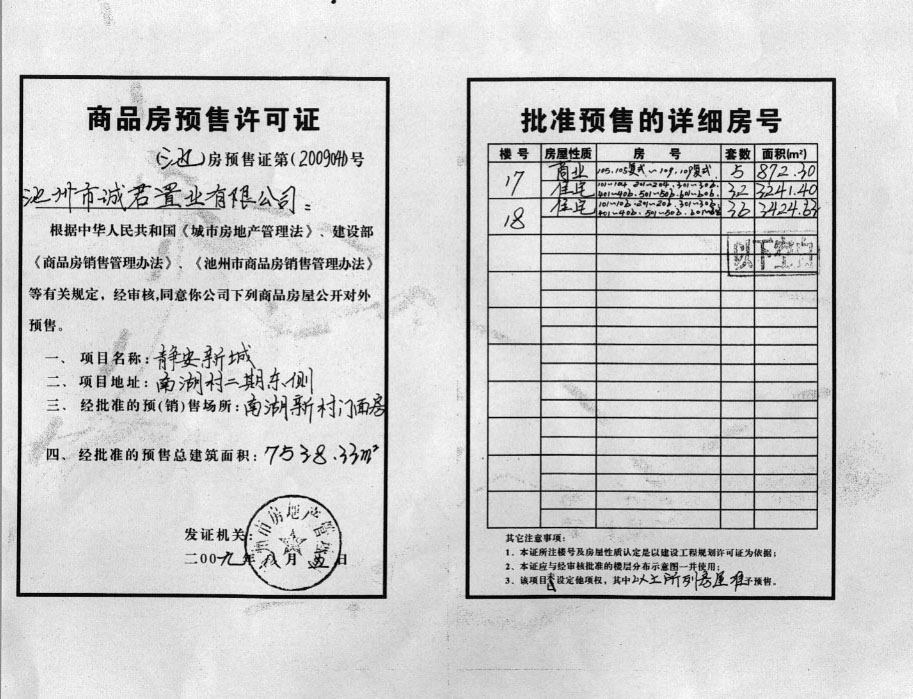 商品房预售许可证
(池)房预售证第(200904)号
池州市诚若置业有限公司:
根据中华人民共和国《城市房地产管理法》、建设部
《商品房销售管理办法》、《池州市商品房销售管理办法》
等有关规定，经审核,同意你公司下列商品房屋公开对外
预售。
一、项目名称:静安新城
二、项目地址:南湖村二期东侧
三、经批准的预(销)售场所:南湖新村门面房
四、经批准的预售总建筑面积:7538.33m²
发证机关:
二00九年八月五日
批准预售的详细房号
楼号 房屋性质 房号 套数 面积(m²)
17 商业 105.105复式~109.109复式 5 872.30
住宅 101-104.201-204.301-306. 401-406.501-506.601-606. 32 3241.40
18 住宅 101-106.201-206.301-306. 401-406.501-506.601-606 36 3424.63
以下空白
其它注意事项:
1．本证所注楼号及房屋性质认定是以建设工程规划许可证为依据;
2．本证应与经审核批准的楼层分布示意图一并使用;
3．该项目设定他项权，其中以上所列房屋准予预售。